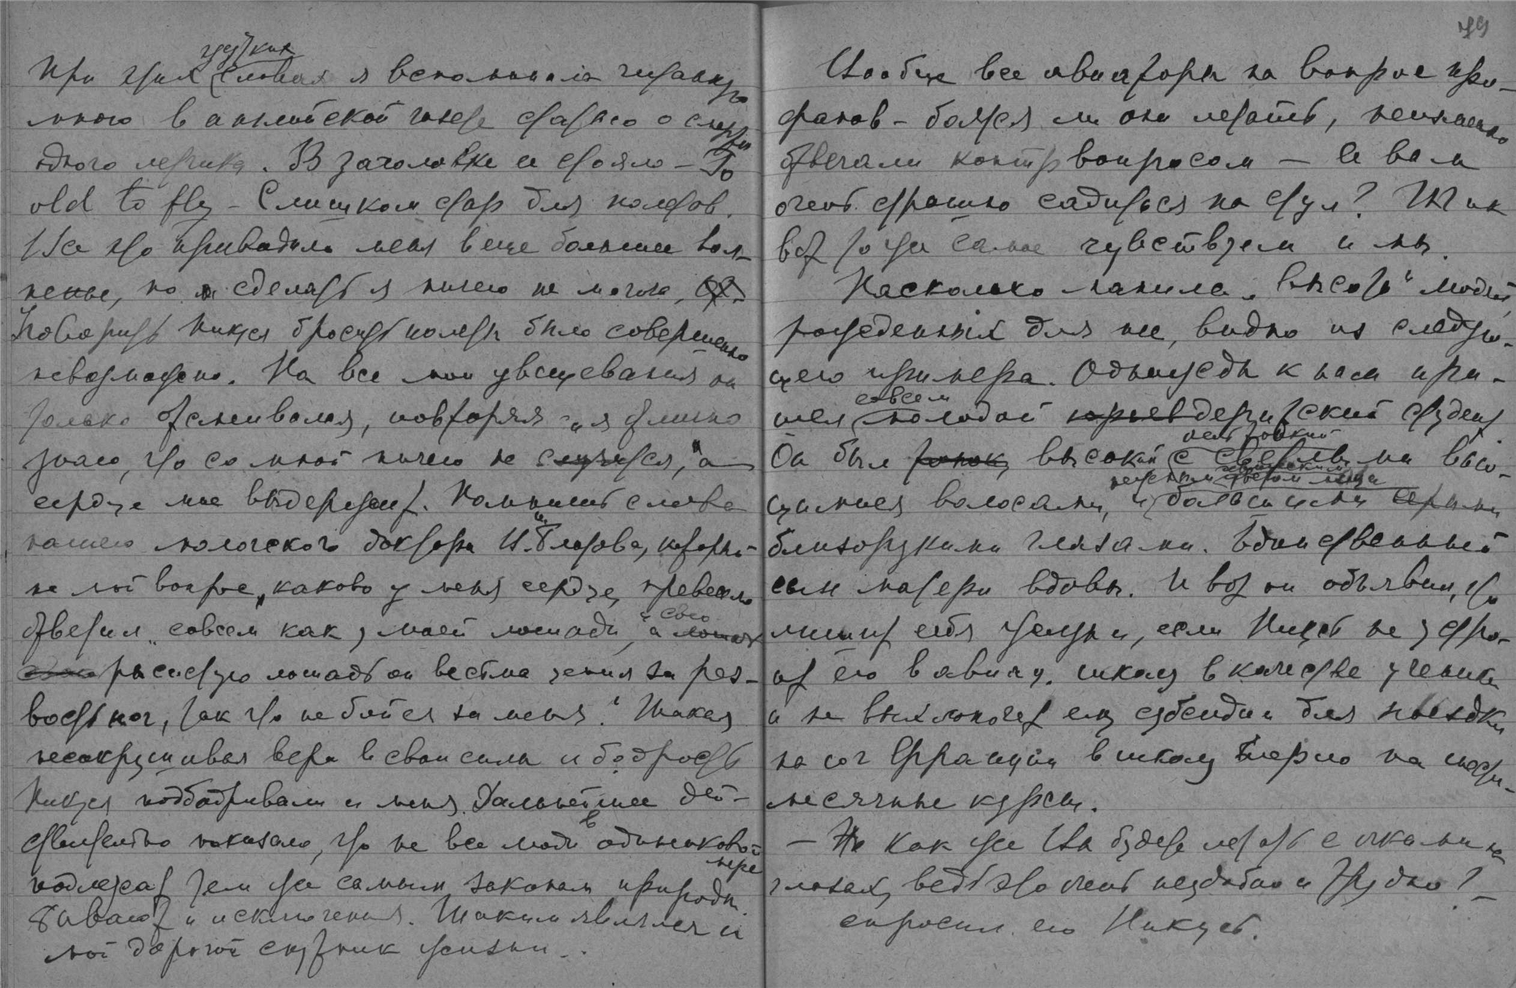 При этих жутких словах я вспоминала читанную
мною в английской газете статью о смерти
одного летчика. В заголовке ее стояло – To
old to fly – Слишком стар для полетов.
Все это приводило меня в еще большее вол-
ненье, но сделать я ничего не могла,
Уговорить Никуся бросить полеты было совершенно
невозможно. На все мои увещевания он
только отсмеивался, повторяя „я отлично
знаю, что со мной ничего не случится," а
сердце мое выдержит. Помнишь слова
нашего мологского доктора И. который
на мой вопрос „каково у меня сердце, превесело
ответил „совсем как у моей лошади, а свою
рысистую лошадь он весьма ценил за рез-
вость ног, так что не бойся за меня." Такая
несокрушивая вера в свои силы и бодрость
Никуся подбадривали и меня. Дальнейшее дей-
ствительно показало, что не все люди в одинаковой
мере
подлежат тем же самым законам природы.
Бывают и исключения. Таким являлся и
мой дорогой спутник жизни...
79
Вообще все авиаторы на вопрос про-
фанов – боятся ли они летать, неизменно
отвечали контрвопросом – А вам
очень страшно садиться на стул? Так
вот то же самое чувствуем и мы.
Насколько манила „высота" людей
рожденных для нее, видно из следую-
щего примера. Однажды к нам при-
шел совсем молодой дерптский студент
Он был высокий с светлыми вью-
щимися волосами, и большими серыми
близорукими глазами. Единственный
сын матери вдовы. И вот он объявил, что
лишит себя жизни, если Никусь не устро-
ит его в авиац. школу в качестве ученика
и не выхлопочет ему субсидии для поездки
на юг Франции в школу Блерио на шести-
месячные курсы.
– Но как же Вы будете летать с очками на
глазах, ведь это очень неудобно и трудно? –
спросил его Никусь.